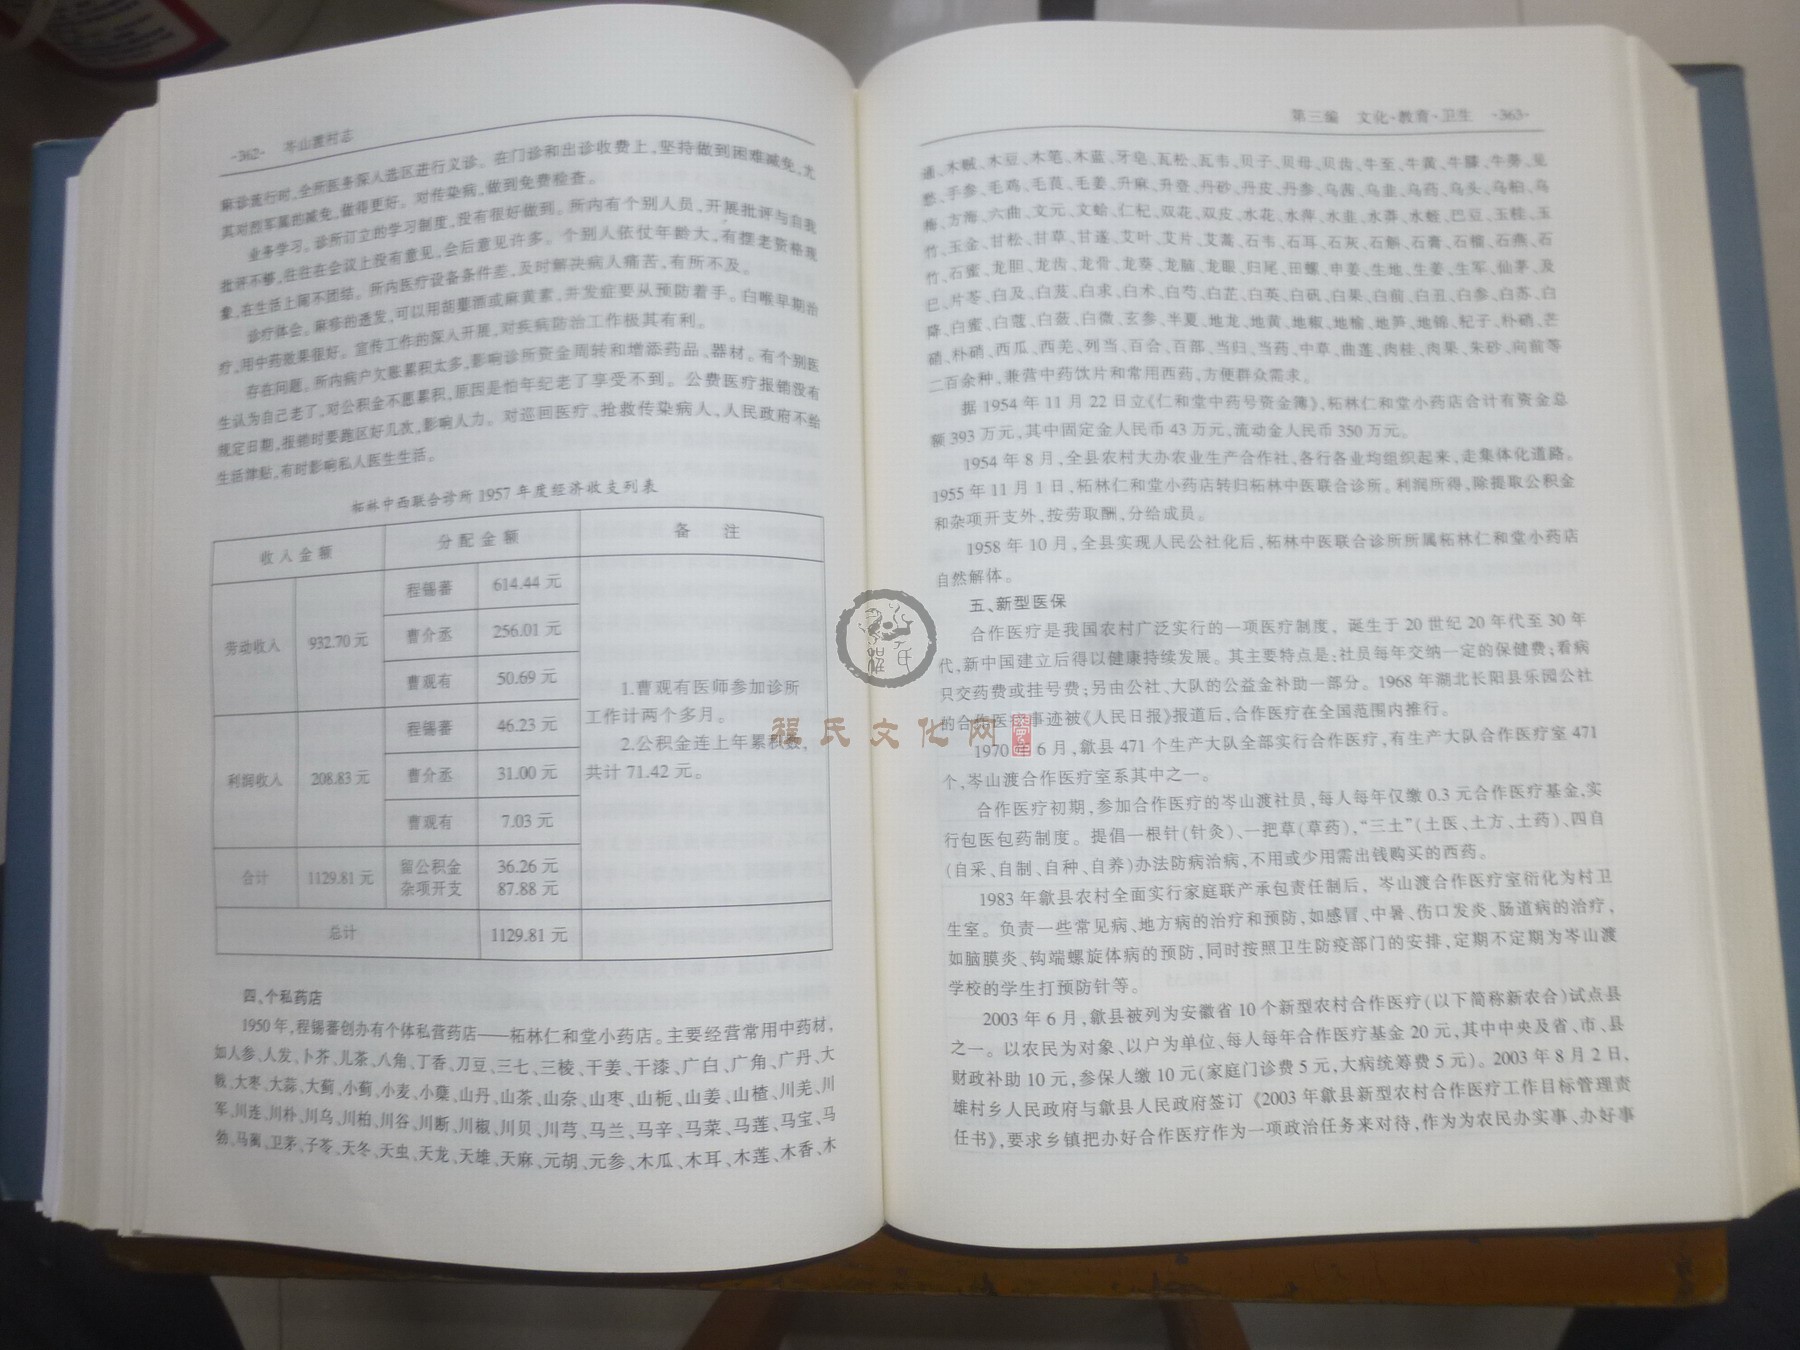 ·362· 岑山渡村志
麻诊流行时，全所医务深入选区进行义诊。在门诊和出诊收费上，坚持做到困难减免，尤
其对烈军属的减免，做得更好。对传染病，做到免费检查。
业务学习。诊所订立的学习制度，没有很好做到。所内有个别人员，开展批评与自我
批评不够，往往在会议上没有意见，会后意见许多。个别人依仗年龄大，有摆老资格现
象，在生活上闹不团结。所内医疗设备条件差，及时解决病人痛苦，有所不及。
诊疗体会。麻疹的透发，可以用胡荽酒或麻黄素，并发症要从预防着手。白喉早期治
疗，用中药效果很好。宣传工作的深入开展，对疾病防治工作极其有利。
存在问题。所内病户欠账累积太多，影响诊所资金周转和增添药品、器材。有个别医
生认为自己老了，对公积金不愿累积，原因是怕年纪老了享受不到。公费医疗报销没有
规定日期，报销时要跑区好几次，影响人力。对巡回医疗、抢救传染病人，人民政府不给
生活津贴，有时影响私人医生生活。
柘林中西联合诊所 1957 年度经济收支列表
收入金额 分配金额 备 注
劳动收入 932.70 元 程锡蕃 614.44 元
曹介丞 256.01 元
曹观有 50.69 元
利润收入 208.83 元 程锡蕃 46.23 元
曹介丞 31.00 元
曹观有 7.03 元
1.曹观有医师参加诊所
工作计两个多月。
2.公积金连上年累积数，
共计 71.42 元。
合计 1129.81 元 留公积金 36.26 元
杂项开支 87.88 元
总计 1129.81 元
四、个私药店
1950 年，程锡蕃创办有个体私营药店——柘林仁和堂小药店。主要经营常用中药材，
如人参、人发、卜芥、儿茶、八角、丁香、刀豆、三七、三棱、干姜、干漆、广白、广角、广丹、大
戟、大枣、大蒜、大蓟、小蓟、小麦、小蘖、山丹、山茶、山奈、山枣、山栀、山姜、山楂、川羌、川
军、川连、川朴、川乌、川柏、川谷、川断、川椒、川贝、川芎、马兰、马辛、马菜、马莲、马宝、马
勃、马蔺、卫茅、子苓、天冬、天虫、天龙、天雄、天麻、元胡、元参、木瓜、木耳、木莲、木香、木
第三编 文化·教育·卫生 ·363·
通、木贼、木豆、木笔、木蓝、牙皂、瓦松、瓦韦、贝子、贝母、贝齿、牛至、牛黄、牛膝、牛蒡、见
愁、手参、毛鸡、毛茛、毛姜、升麻、升登、丹砂、丹皮、丹参、乌茜、乌韭、乌药、乌头、乌桕、乌
梅、方海、六曲、文元、文蛤、仁杞、双花、双皮、水花、水萍、水韭、水莽、水蛭、巴豆、玉桂、玉
竹、玉金、甘松、甘草、甘遂、艾叶、艾片、艾蒿、石韦、石耳、石灰、石斛、石膏、石榴、石燕、石
竹、石蜜、龙胆、龙齿、龙骨、龙葵、龙脑、龙眼、归尾、田螺、申姜、生地、生姜、生军、仙茅、及
已、片苓、白及、白芨、白求、白术、白芍、白芷、白英、白矾、白果、白前、白丑、白参、白苏、白
降、白蜜、白蔻、白蔹、白微、玄参、半夏、地龙、地黄、地椒、地榆、地笋、地锦、杞子、朴硝、芒
硝、朴硝、西瓜、西羌、列当、百合、百部、当归、当药、中草、曲莲、肉桂、肉果、朱砂、向前等
二百余种，兼营中药饮片和常用西药，方便群众需求。
据 1954 年 11 月 22 日立《仁和堂中药号资金簿》，柘林仁和堂小药店合计有资金总
额 393 万元，其中固定金人民币 43 万元，流动金人民币 350 万元。
1954 年 8 月，全县农村大办农业生产合作社，各行各业均组织起来，走集体化道路。
1955 年 11 月 1 日，柘林仁和堂小药店转归柘林中医联合诊所。利润所得，除提取公积金
和杂项开支外，按劳取酬，分给成员。
1958 年 10 月，全县实现人民公社化后，柘林中医联合诊所所属柘林仁和堂小药店
自然解体。
五、新型医保
合作医疗是我国农村广泛实行的一项医疗制度，诞生于 20 世纪 20 年代至 30 年
代，新中国建立后得以健康持续发展。其主要特点是：社员每年交纳一定的保健费；看病
只交药费或挂号费；另由公社、大队的公益金补助一部分。1968 年湖北长阳县乐园公社
的合作医疗事迹被《人民日报》报道后，合作医疗在全国范围内推行。
1970 年 6 月，歙县 471 个生产大队全部实行合作医疗，有生产大队合作医疗室 471
个，岑山渡合作医疗室系其中之一。
合作医疗初期，参加合作医疗的岑山渡社员，每人每年仅缴 0.3 元合作医疗基金，实
行包医包药制度。提倡一根针（针灸）、一把草（草药），“三土”（土医、土方、土药）、四自
（自采、自制、自种、自养）办法防病治病，不用或少用需出钱购买的西药。
1983 年歙县农村全面实行家庭联产承包责任制后，岑山渡合作医疗室衍化为村卫
生室。负责一些常见病、地方病的治疗和预防，如感冒、中暑、伤口发炎、肠道病的治疗，
如脑膜炎、钩端螺旋体病的预防，同时按照卫生防疫部门的安排，定期不定期为岑山渡
学校的学生打预防针等。
2003 年 6 月，歙县被列为安徽省 10 个新型农村合作医疗（以下简称新农合）试点县
之一。以农民为对象、以户为单位、每人每年合作医疗基金 20 元，其中中央及省、市、县
财政补助 10 元，参保人缴 10 元（家庭门诊费 5 元，大病统筹费 5 元）。2003 年 8 月 2 日，
雄村乡人民政府与歙县人民政府签订《2003 年歙县新型农村合作医疗工作目标管理责
任书》，要求乡镇把办好合作医疗作为一项政治任务来对待，作为为农民办实事、办好事
程氏文化网